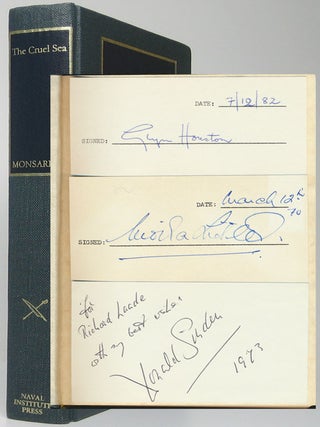 The Cruel Sea
MONSAR
NAVAL
INSTITUTE
PRESS
DATE: 7/12/82
SIGNED: Glyn Houston
DATE: March 12th
SIGNED:
for
Richard
with my best wishes
Donald Sinden
1973